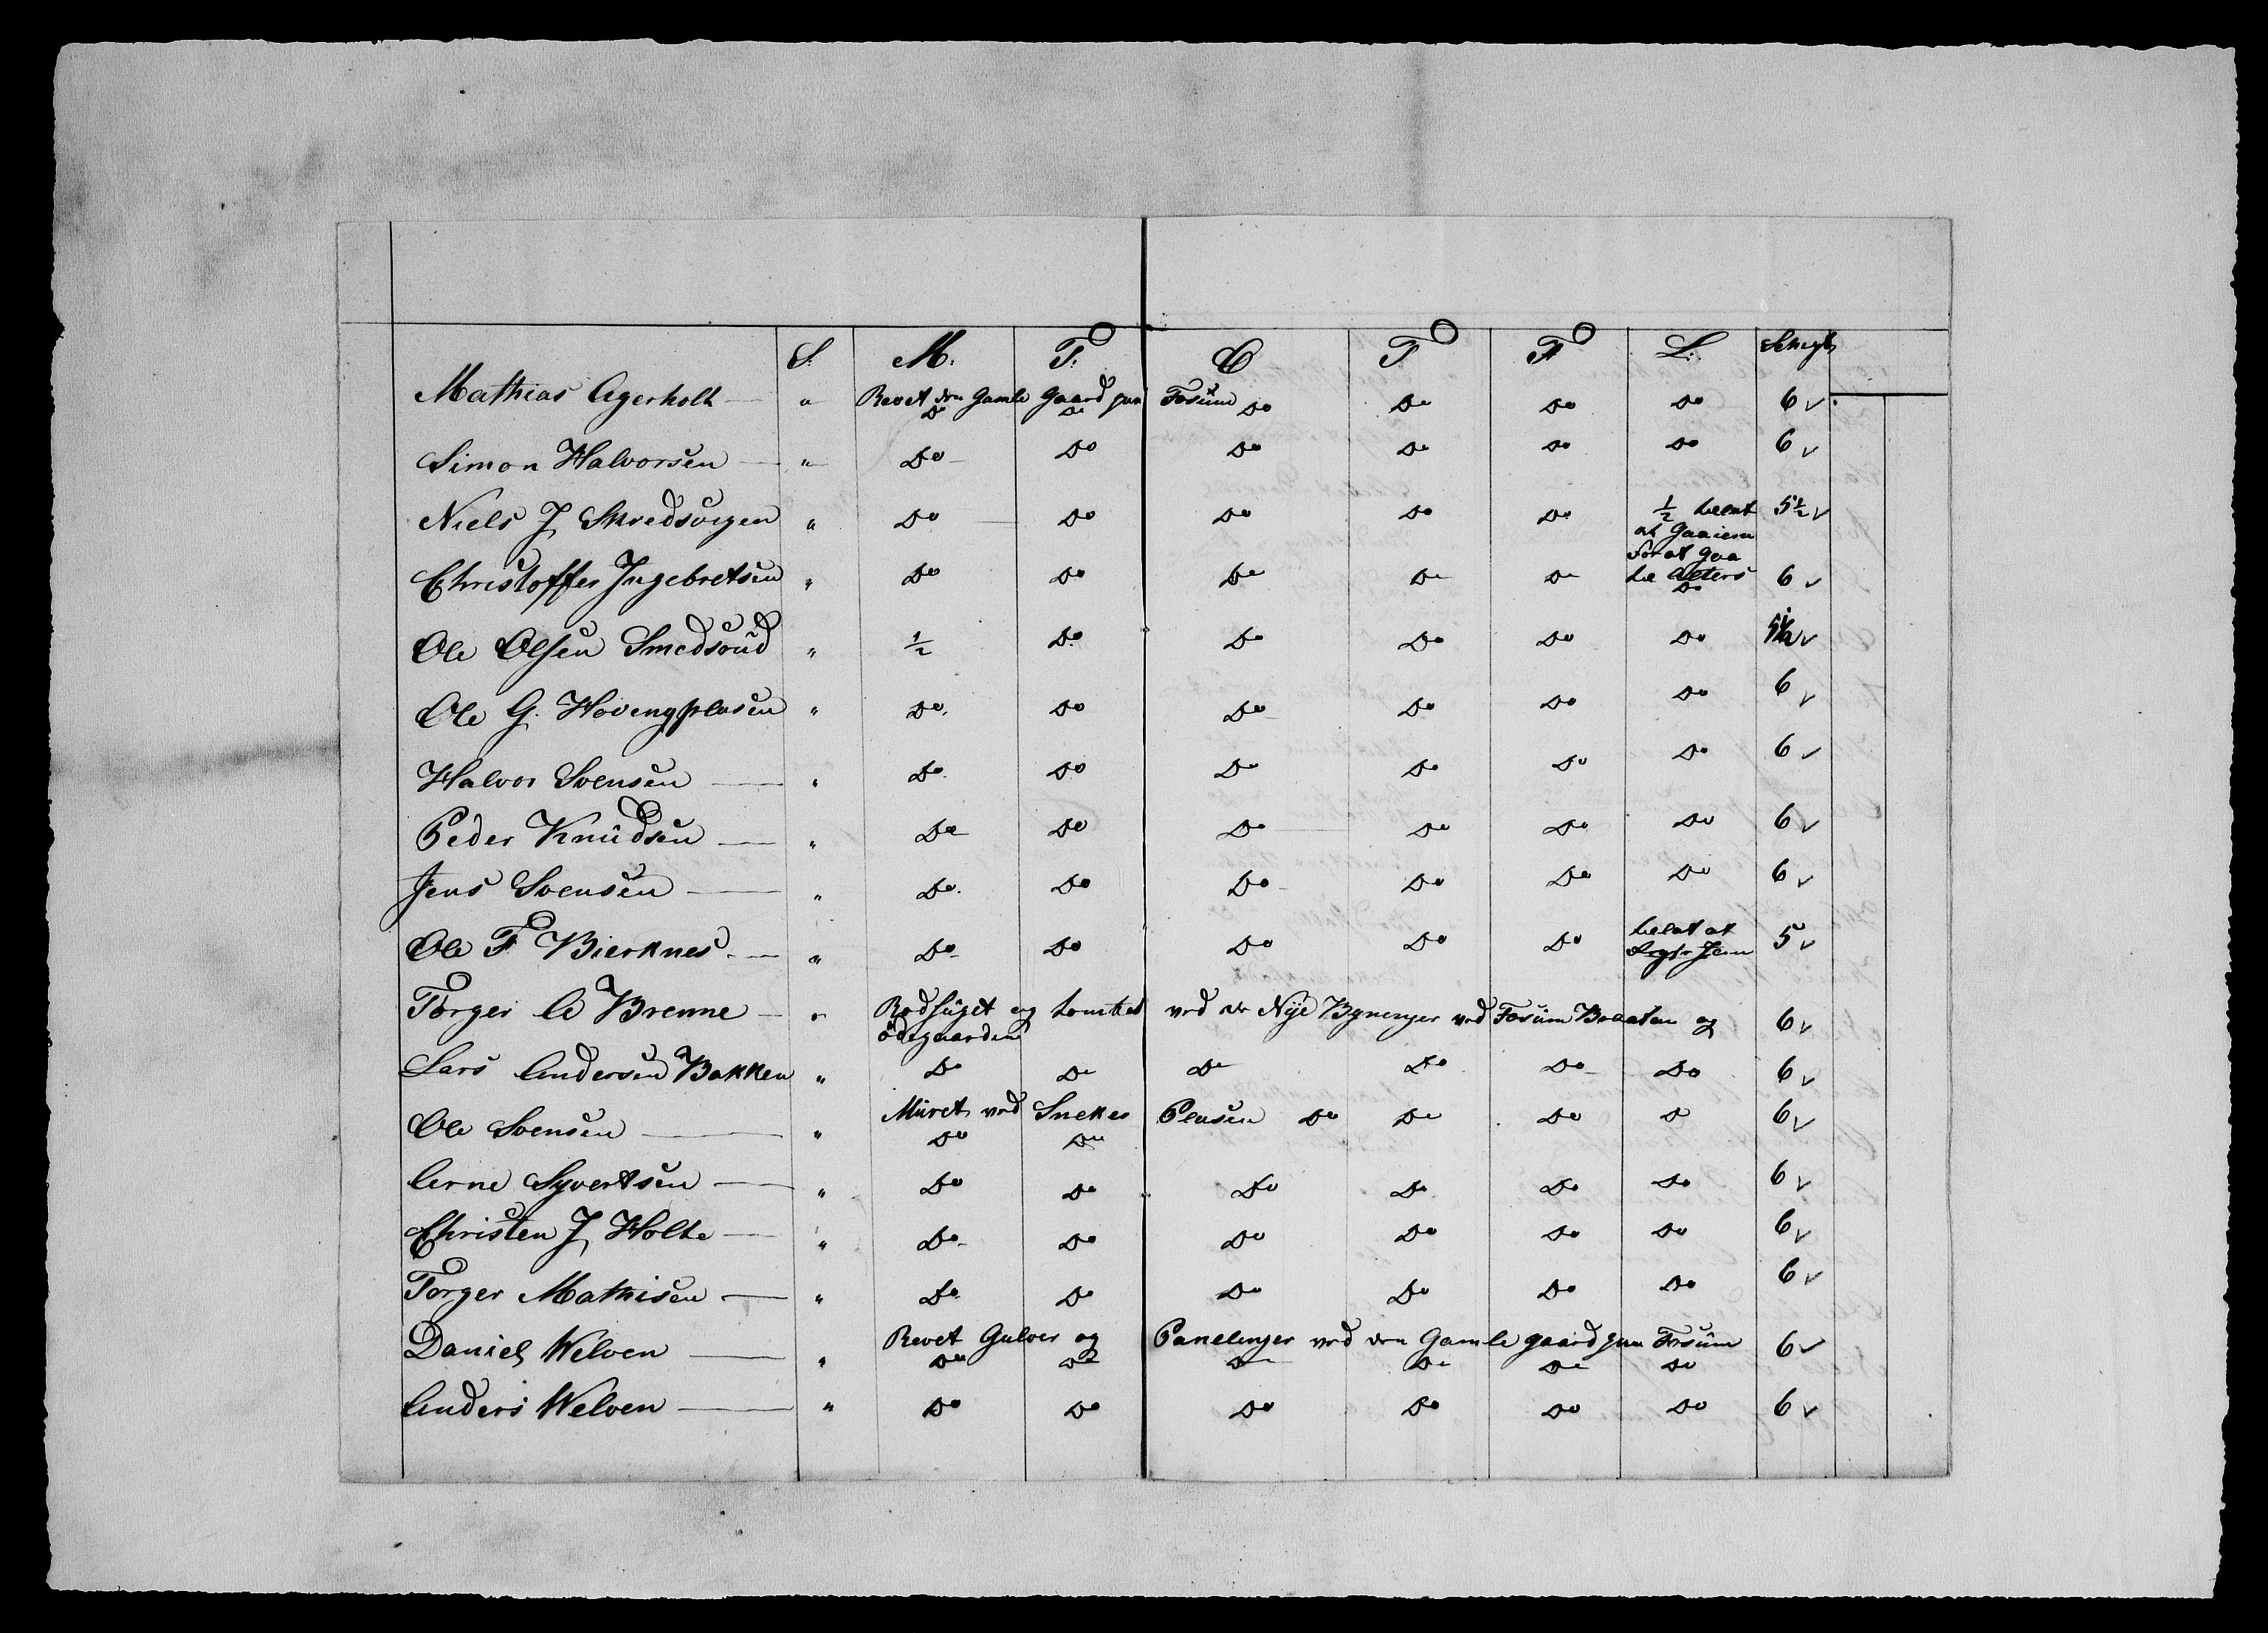 S. M. T. O T F L. Schigt
Mathias Agerholt — " Revet den Gamle Gaard paa Fosüm Do Do Do Do 6 ✓
Do Do
Simon Halvorsen — " Do Do Do Do Do Do 6 ✓
Niels J Skredsvigen " Do Do Do Do Do ½ 5½ ✓
at
for at gaa
Christoffer Ingebretsen " Do Do Do Do Do Do 6 ✓
Ole Olsen Smedsrud " ½ Do Do Do Do Do 5½ ✓
Ole G. Hovengplasen " Do. Do Do Do Do Do 6 ✓
Halvor Svensen — " Do. Do Do Do Do Do 6 ✓
Peder Knüdsen — " Do Do Do Do Do Do 6 ✓
Jens Svensen — " Do. Do Do Do Do Do 6 ✓
Ole F Bierknes — " Do Do Do Do Do 5 ✓
Torger A Brenne — " Rodhüget og tomttet ved de Nye Bynenger ved Fosüm Braaten og 6 ✓
ödegaarden
Lars Andersen Bakken " Do Do Do Do Do Do 6 ✓
Ole Svensen — " Müret ved Sneker Plasen Do Do Do D 6 ✓
Do Do
Arne Syvertsen — " Do Do Do Do Do Do 6 ✓
Christen J Holte — " Do Do Do Do Do Do 6 ✓
Torger Mathisen — " Do Do Do Do Do Do 6 ✓
Daniel Welven — " Revet Gulver og Panelenger ved den Gamle gaard paa Fosüm 6 ✓
Do Do Do Do Do Do
Anders Welven — " Do Do Do Do Do Do 6 ✓